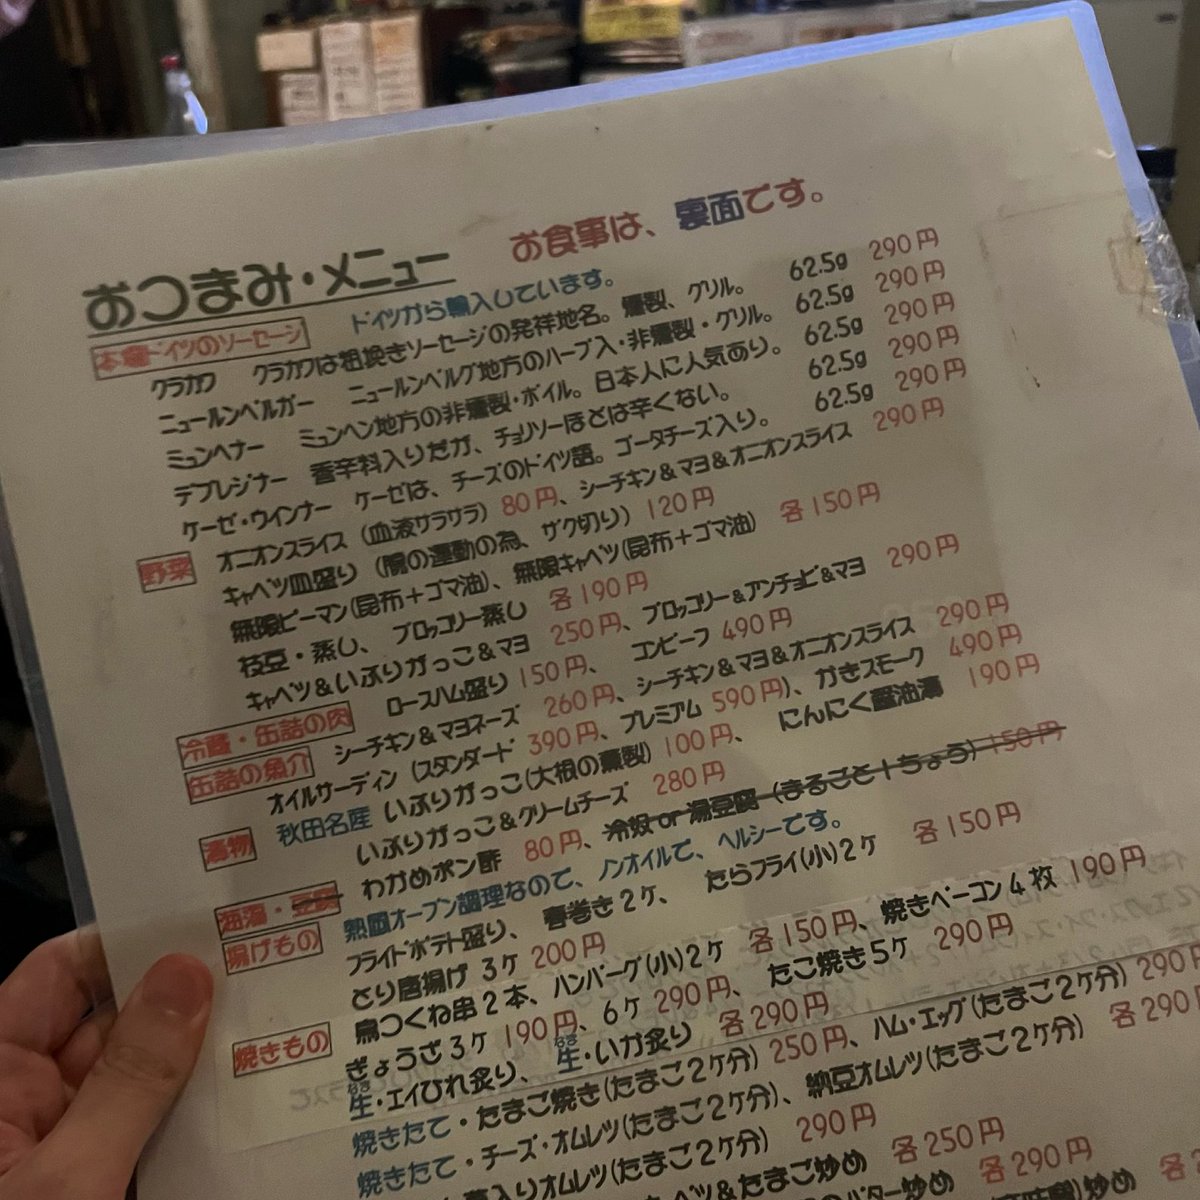 おつまみ・メニュー お食事は、裏面です。
本場ドイツのソーセージ ドイツから輸入しています。
クラカワ クラカワは粗挽きソーセージの発祥地名。燻製、グリル。 62.5g 290円
ニュールンベルガー ニュールンベルグ地方のハーブ入・非燻製・グリル。 62.5g 290円
ミュンヘナー ミュンヘン地方の非燻製・ボイル。日本人に人気あり。 62.5g 290円
デブレジナー 香辛料入りだが、チョリソーほどは辛くない。 62.5g 290円
ケーゼ・ウインナー ケーゼは、チーズのドイツ語。ゴータチーズ入り。 62.5g 290円
野菜 オニオンスライス（血液サラサラ）80円、シーチキン＆マヨ＆オニオンスライス 290円
キャベツ皿盛り（腸の運動の為、ザク切り）120円
無限ピーマン(昆布＋ゴマ油)、無限キャベツ(昆布＋ゴマ油) 各150円
枝豆・蒸し、ブロッコリー蒸し 各190円
キャベツ＆いぶりがっこ＆マヨ 250円、ブロッコリー＆アンチョビ＆マヨ 290円
冷蔵・缶詰の肉 ロースハム盛り 150円、コンビーフ 490円
缶詰の魚介 シーチキン＆マヨネーズ 260円、シーチキン＆マヨ＆オニオンスライス 290円
オイルサーディン（スタンダード 390円、プレミアム 590円）、かきスモーク 490円
漬物 秋田名産 いぶりがっこ(大根の燻製) 100円、にんにく醤油漬 190円
いぶりがっこ＆クリームチーズ 280円
海藻・豆腐 わかめポン酢 80円、冷奴or湯豆腐（まるごと1ちょう）150円
揚げもの 熱風オーブン調理なので、ノンオイルで、ヘルシーです。
フライドポテト盛り、春巻き2ケ、たらフライ(小)2ケ 各150円
とり唐揚げ 3ケ 200円
焼きもの 鳥つくね串2本、ハンバーグ(小)2ケ 各150円、焼きベーコン4枚 190円
ぎょうざ3ケ 190円、6ケ 290円、たこ焼き5ケ 290円
生・エイひれ炙り、生・いか炙り 各290円
焼きたて・たまご焼き(たまご2ケ分) 250円、ハム・エッグ(たまご2ケ分) 290円
焼きたて・チーズ・オムレツ(たまご2ケ分)、納豆オムレツ(たまご2ケ分) 各290
入りオムレツ(たまご2ケ分) 290円
＆たまご炒め 各250円
バター炒め 各290円